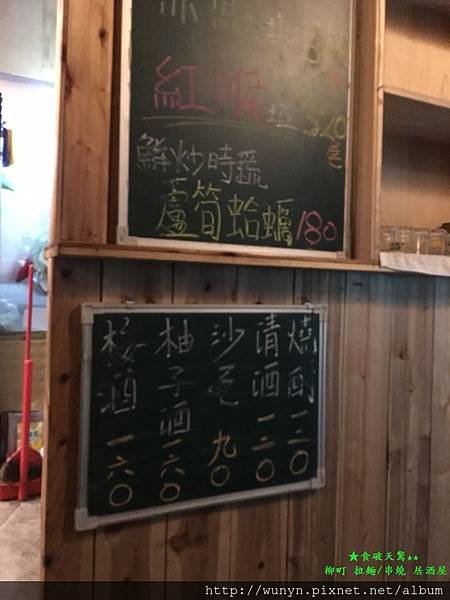 紅喉 塩 320
鮮炒時蔬
蘆筍蛤蠣 180
燒酎 一三〇
清酒 一二〇
沙瓦 九〇
柚子酒 一六〇
桜酒 一六〇
★食破天驚★★
柳町 拉麵/串燒 居酒屋
http://wunyn.pixnet.net/album